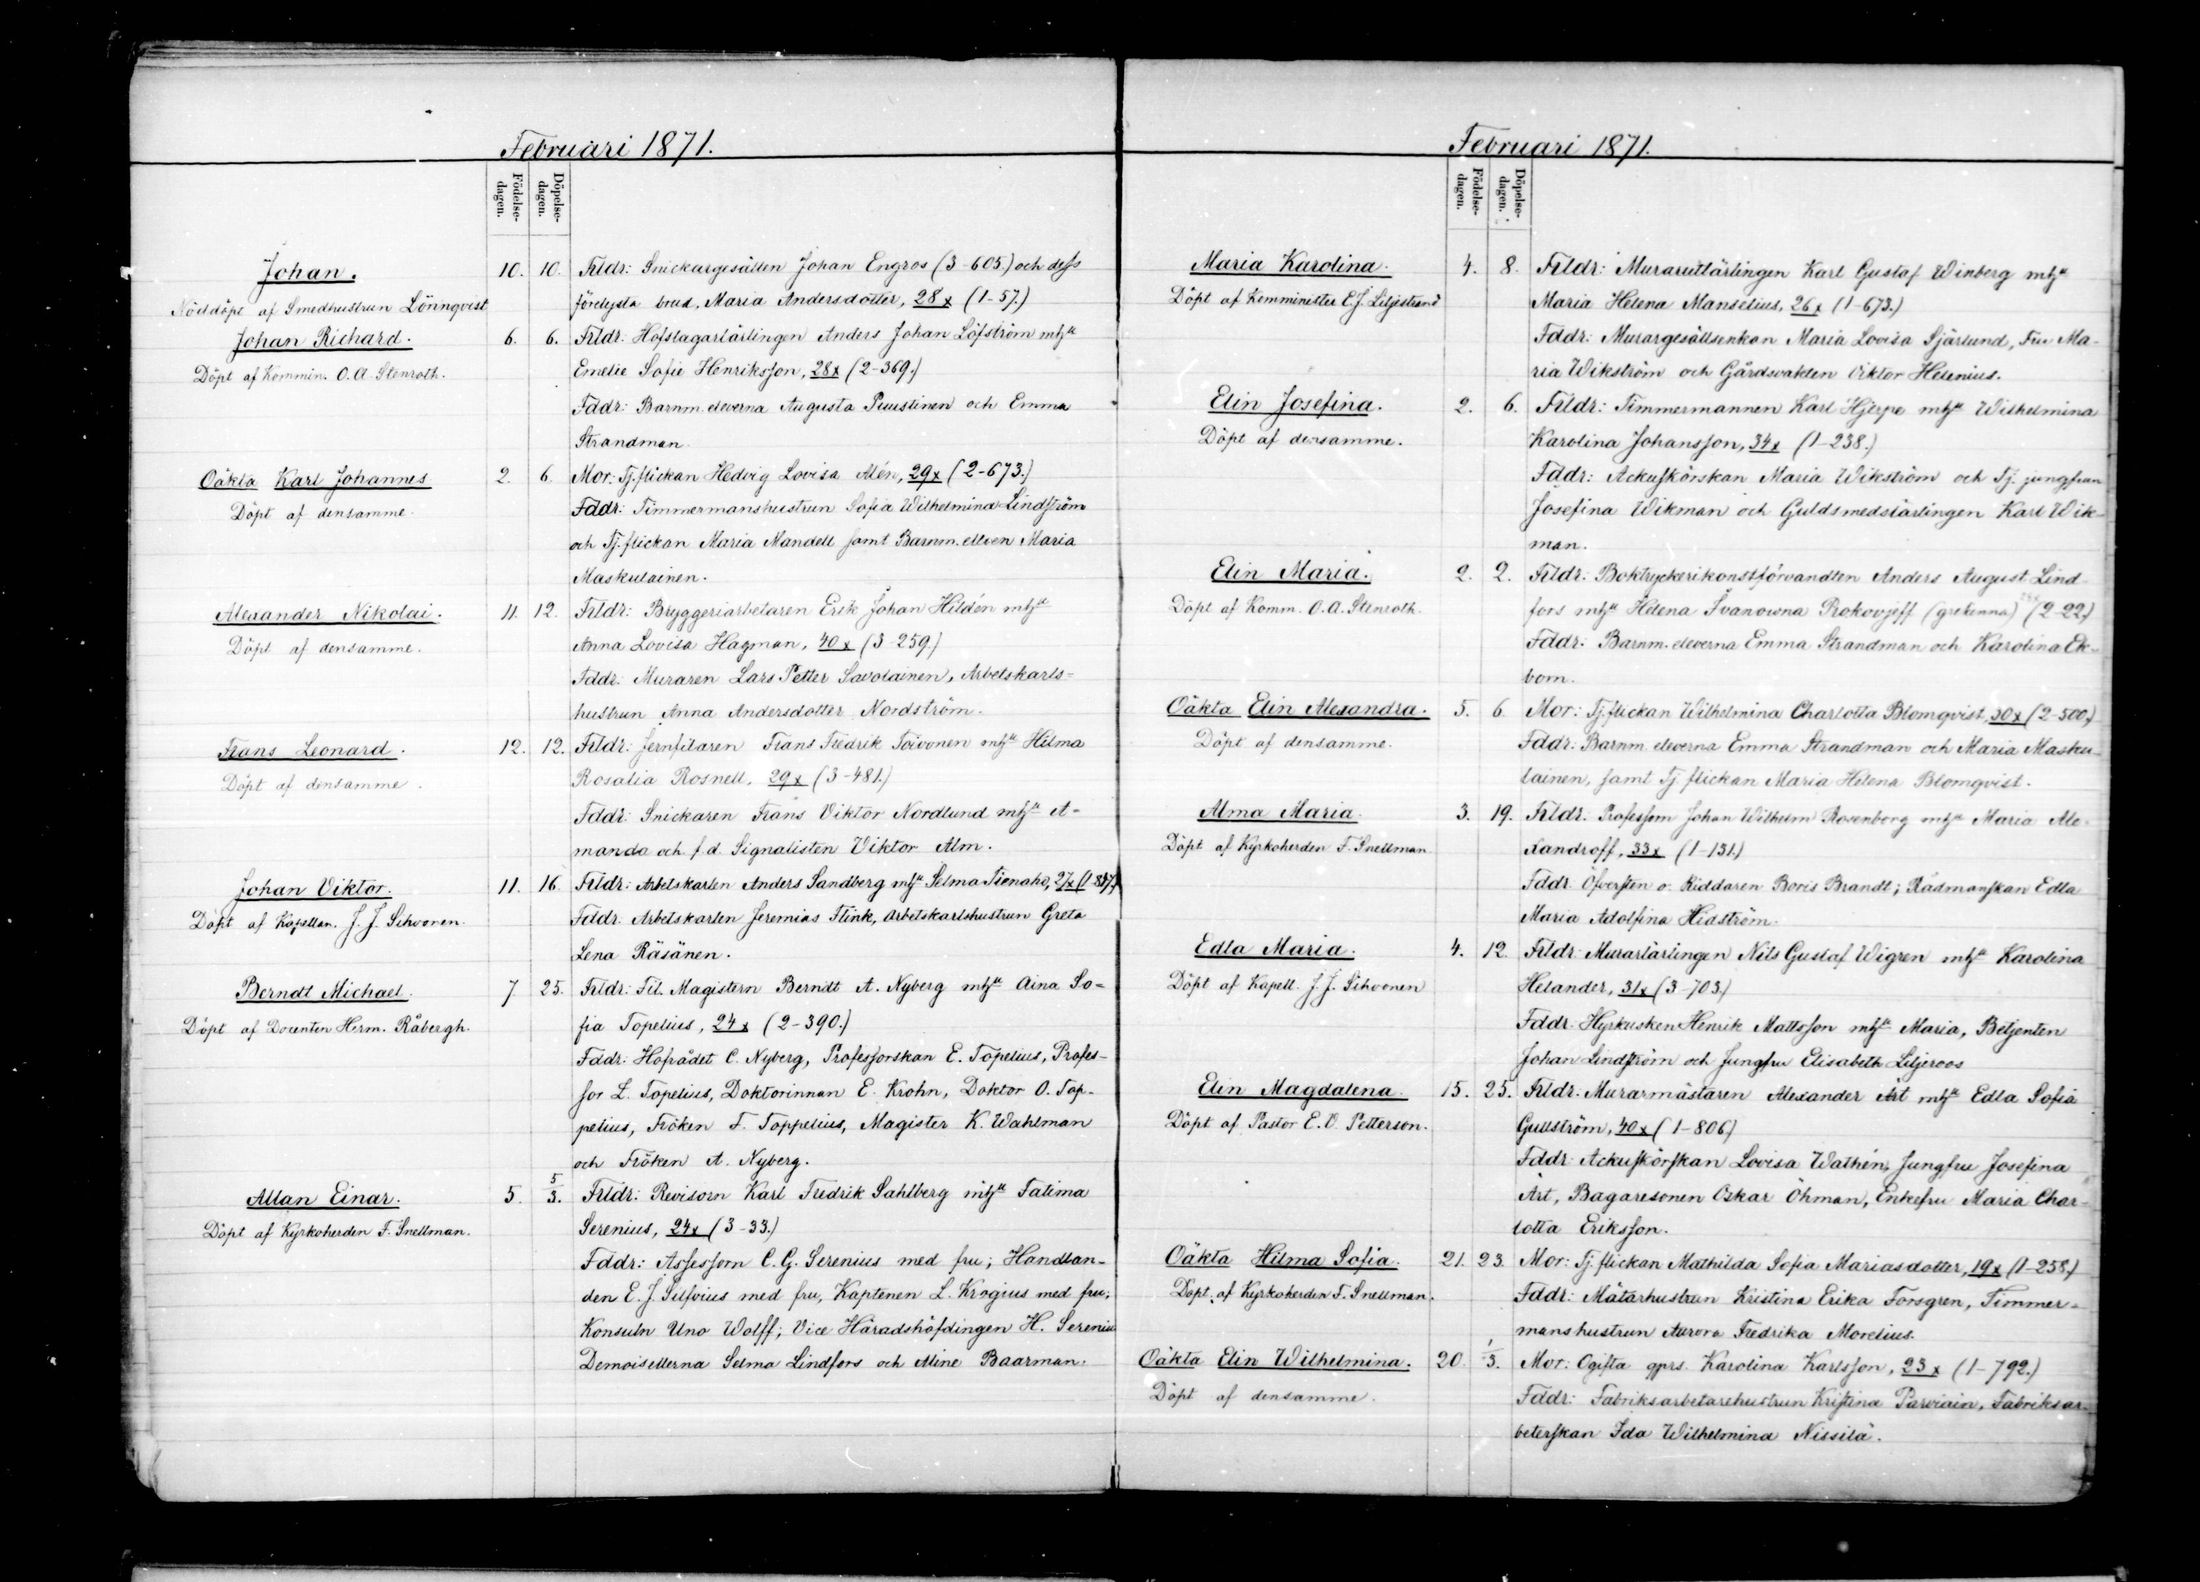 Februari 1871.
Födelse-
dagen.
Döpelse-
dagen.
Johan. 10. 10. Frldr: Snickargesällen Johan Engros (3-605.) och dess
Nöddöpt af Smedhustrun Lönnqvist förelysta brud, Maria Andersdotter, 28 x (1-57.)
Johan Richard. 6. 6. Frldr: Hofslagarlärlingen Anders Johan Löfström mhu
Döpt af Kommin. O. A. Stenroth. Emelie Sofie Henriksson, 28x (2-369.)
Fddr: Barnm. eleverna Augusta Puustinen och Emma
Strandman.
Oäkta Karl Johannes 2. 6. Mor: Tj. flickan Hedvig Lovisa Alén, 29x (2-673.)
Döpt af densamme. Fddr: Timmermanshustrun Sofia Wilhelmina Lindström
och Tj. flickan Maria Mandell samt Barnm. eleven Maria
Maskulainen.
Alexander Nikolai. 11. 12. Frldr: Bryggeriarbetaren Erik Johan Hildén mhu
Döpt af densamme. Anna Lovisa Hagman, 40 x (3-259.)
Fddr: Muraren Lars Petter Savolainen, Arbetskarls-
hustrun Anna Andersdotter Nordström.
Frans Leonard. 12. 12. Frldr: Jernfilaren Frans Fredrik Toivonen mhu Hilma
Döpt af densamme. Rosalia Rosnell, 29 x (3-481.)
Fddr: Snickaren Frans Viktor Nordlund mhu A-
manda och f. d. Signalisten Viktor Alm.
Johan Viktor. 11. 16. Frldr: Arbetskarlen Anders Sandberg mhu Selma Tienaho, 27x (1-837.)
Döpt af Kapellan. J. J. Sihvonen. Fddr: Arbetskarlen Jeremias Flink, Arbetskarlshustrun Greta
Lena Räsänen.
Berndt Michael. 7. 25. Frldr: Fil. Magistern Berndt A. Nyberg mhu Aina So-
Döpt af Docenten Herm. Råbergh. fia Topelius, 24 x (2-390.)
Fddr: Hofrådet C. Nyberg, Professorskan E. Topelius, Profes-
sor Z. Topelius, Doktorinnan E. Krohn, Doktor O. Top-
pelius, Fröken T. Toppelius, Magister K. Wahlman
och Fröken A. Nyberg.
Allan Einar. 5. 5/3. Frldr: Revisorn Karl Fredrik Sahlberg mhu Fatima
Döpt af Kyrkoherden F. Snellman. Serenius, 24x (3-33.)
Fddr: Assessorn C. G. Serenius med fru; Handlan-
den E. J. Silfvius med fru, Kaptenen L. Krogius med fru;
Konsuln Uno Wolff; Vice Häradshöfdingen H. Serenius
Demoisellerna Selma Lindfors och Aline Baarman.
Februari 1871.
Födelse-
dagen.
Döpelse-
dagen.
Maria Karolina. 4. 8. Frldr: Murarutlärlingen Karl Gustaf Winberg mhu
Döpt af Komminister E. J. Liljestrand Maria Helena Manselius, 26 x (1-673.)
Fddr: Murargesällsenkan Maria Lovisa Sjärlund, Fru Ma-
ria Wikström och Gårdsvakten Viktor Helenius.
Elin Josefina. 2. 6. Frldr: Timmermannen Karl Hjerpe mhu Wilhelmina
Döpt af densamme. Karolina Johansson, 34x (1-238.)
Fddr: Ackuskörskan Maria Wikström och Tj. jungfrun
Josefina Wikman och Guldsmedslärlingen Karl Wik-
man.
Elin Maria. 2. 2. Frldr: Boktryckerikonstförvandten Anders August Lind-
Döpt af Komm. O. A. Stenroth. fors mhu Helena Ivanowna Prokovjeff (grekinna) (2-22.)
Fddr: Barnm. eleverna Emma Strandman och Karolina Ek-
bom.
Oäkta Elin Alexandra. 5. 6. Mor: Tj. flickan Wilhelmina Charlotta Blomqvist, 30x (2-500.)
Döpt af densamme. Fddr: Barnm. eleverna Emma Strandman och Maria Masku-
lainen, samt Tj. flickan Maria Helena Blomqvist.
Alma Maria. 3. 19. Frldr: Professorn Johan Wilhelm Rosenborg mhu Maria Ale-
Döpt af Kyrkoherden F. Snellman xandroff, 33x (1-131.)
Fddr: Öfversten o. Riddaren Boris Brandt; Rådmanskan Edla
Maria Adolfina Hidström.
Edla Maria. 4. 12. Frldr: Murarlärlingen Nils Gustaf Wigren mhu Karolina
Döpt af Kapell. J. J. Sihvonen Helander, 31x (3-703.)
Fddr: Hyrkusken Henrik Mattsson mhu Maria, Betjenten
Johan Lindström och Jungfru Elisabeth Liljeroos
Elin Magdalena. 15. 25. Frldr: Murarmästaren Alexander Art mhu Edla Sofia
Döpt af Pastor E. O. Petterson. Gullström, 40x (1-806)
Fddr: Ackuskörskan Lovisa Wathén, Jungfru Josefina
Art, Bagaresonen Oskar Öhman, Enkefru Maria Char-
lotta Eriksson.
Oäkta Hilma Sofia. 21. 23. Mor: Tj. flickan Mathilda Sofia Mariasdotter, 19x (1-258.)
Döpt af Kyrkoherden F. Snellman. Fddr: Mätarhustrun Kristina Erika Forsgren, Timmer-
manshustrun Aurora Fredrika Morelius.
Oäkta Elin Wilhelmina. 20. 1/3. Mor: Ogifta gprs. Karolina Karlsson, 23 x (1-792.)
Döpt af densamme. Fddr: Fabriksarbetarehustrun Kristina Parviain, Fabriksar-
beterskan Ida Wilhelmina Nissilä.